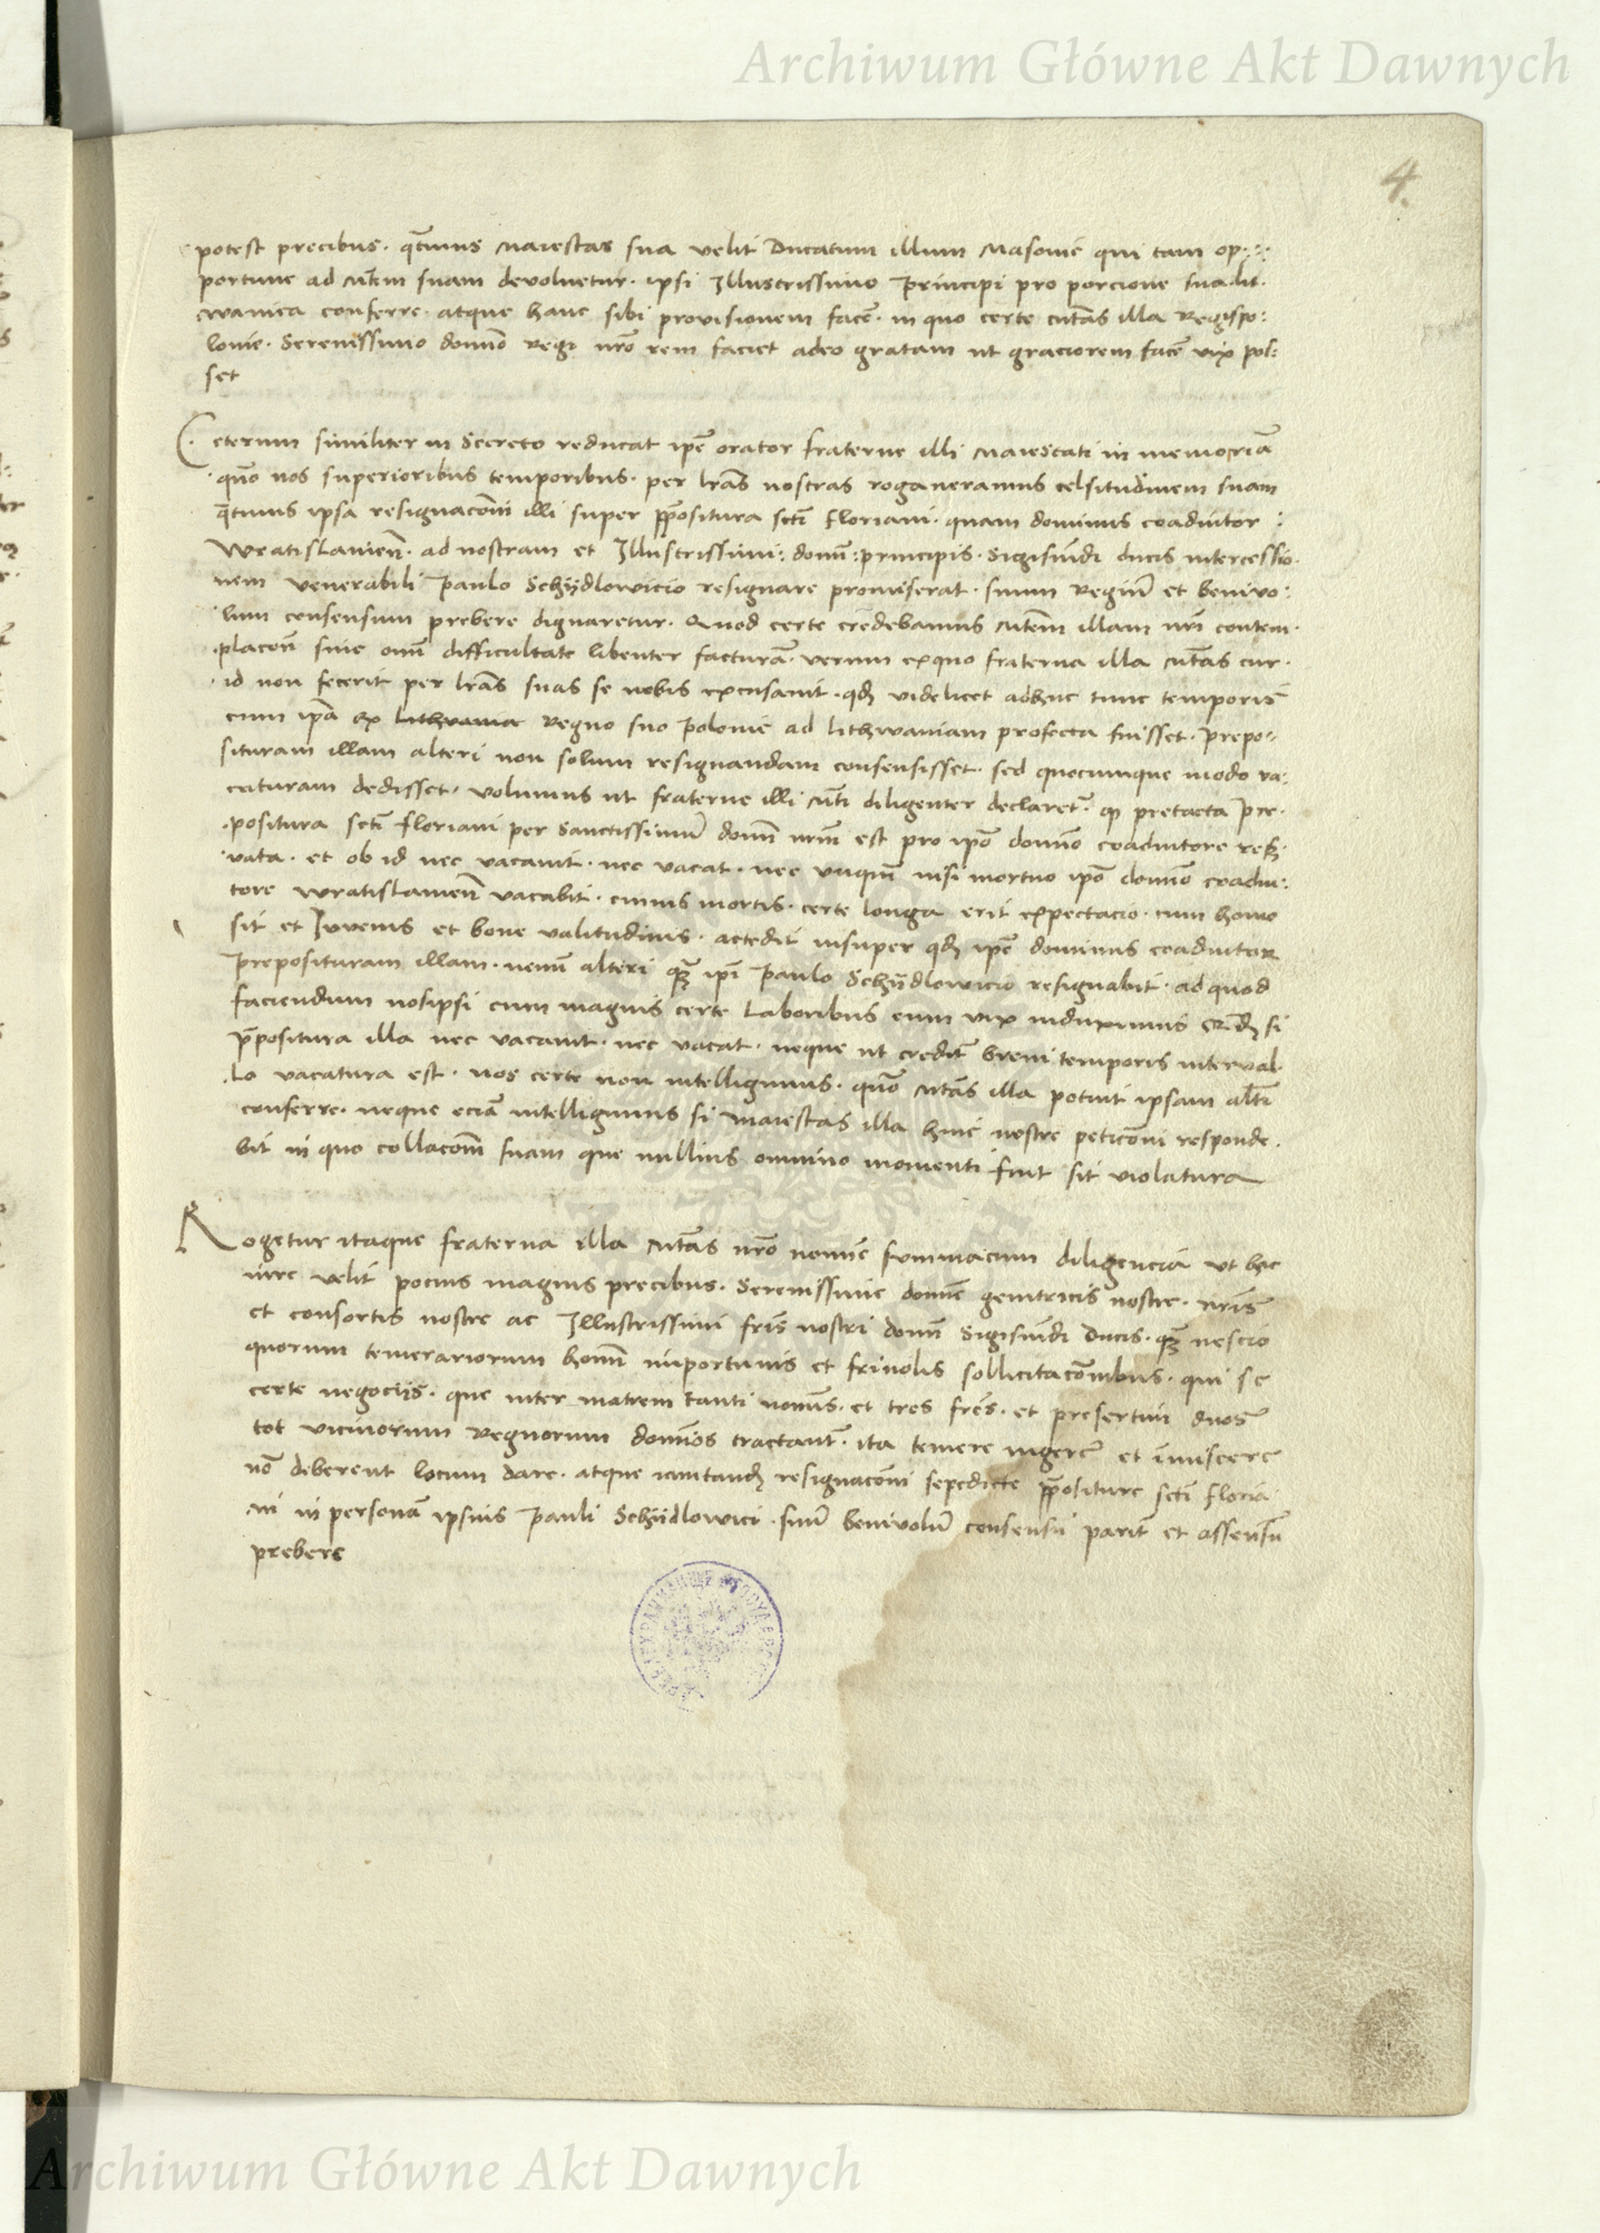 Archiwum Główne Akt Dawnych
4.
potest precibus. q̃tinus Maiestas sua velit Ducatum illum Masovie qui tam op:
portune ad M̃tem suam devolvetur. ipsi Illustrissimo Principi pro porcione sua lit.
wanica conferre. atque hanc sibi provisionem facẽ. in quo certe M̃tas illa Regis po:
lonie. Serenissimo domno Regi nr̃o rem faciet adeo gratam ut graciorem facẽ vix pos:
set
Ceterum similiter in Secreto reducat ip̃e orator fraterne illi Maiestati in memoriã
quõ nos superioribus temporibus. per lrãs nostras rogaveramus celsitudinem suam
q̃tinus ipsa resignacõni illi super p̃positura scti Floriani. quam dominus coadiutor :
Wratislavien̄. ad nostram et Illustrissimi: domn̄: principis. Sigismũdi ducis intercessio.
nem venerabili Paulo Schijdlowicio resignare promiserat. suum Regiũ et benivo:
lum consensum prebere dignaretur. Quod certe credebamus M̃tem illam nr̃i contem.
placõn sine omn̄ difficultate libenter facturã. verum exquo fraterna illa M̃tas cur.
id non fecerit per lrãs suas se nobis excusavit. qđ videlicet adhuc tunc temporis
cum ip̃a ex Lithvania Regno suo Polonie ad lithwaniam profecta fuisset. Prepo:
situram illam alteri non solum resignandam consensisset. sed quocumque modo va:
caturam dedisset. volumus ut fraterne illi M̃ti diligenter declaretr̃. qđ pretacta Pre.
positura scti Floriani per Sanctissimũ domn̄ nr̃m est pro ip̃o domno coadiutore reß.
vata. et ob id nec vacavit. nec vacat. nec unquã nisi mortuo ip̃o domno coadiu:
tore Wratislavien̄ vacabit. cuius mortis. certe longa erit expectacio. cum homo
sit et Iuvenis et bone valitudinis. accedit insuper qđ ip̃e dominus coadiutor
Preposituram illam. nemĩ alteri q̃ ip̃i Paulo Schijdlowicio resignabit. ad quod
faciendum nosipsi cum magnis certe Laboribus eum vix induximus qđ si
p̃positura illa nec vacavit. nec vacat. neque ut creditr̃ brevi temporis interval.
lo vacatura est. nos certe non intelligimus. quõ M̃tas illa potuit ipsam alt̃i
conferre. neque eciã intelligimus si Maiestas illa huic nostre peticõni responde.
bit in quo collacõnẽ suam que nullius omnino momenti fuit sit violatura
Rogetur itaque fraterna illa M̃tas nr̃o nomine summacum diligenciã ut hec
iure velit pocius magnis precibus. Serenissime domne genitricis nostre. nr̃is
et consortis nostre ac Illustrissimi frĩs nostri domn̄ Sigismũdi Ducis. q̃ nescio
quorum temerariorum homĩ importunis et frivolis sollicitacõnibus. qui se
certe negociis. que inter matrem tanti nomĩs. et tres frẽs. et presertim duos
tot vicinorum Regnorum domnos tractant̃. ita temere ingerẽ et ĩmiscere
nõ deberent locum dare. atque tamtandẽ resignacõni sepedicte p̃positure scti Floria
ni in personã ipsius Pauli Schijdlowici. suũ benivolũ consensũ parit̃ et assensũ
prebere
Archiwum Główne Akt Dawnych